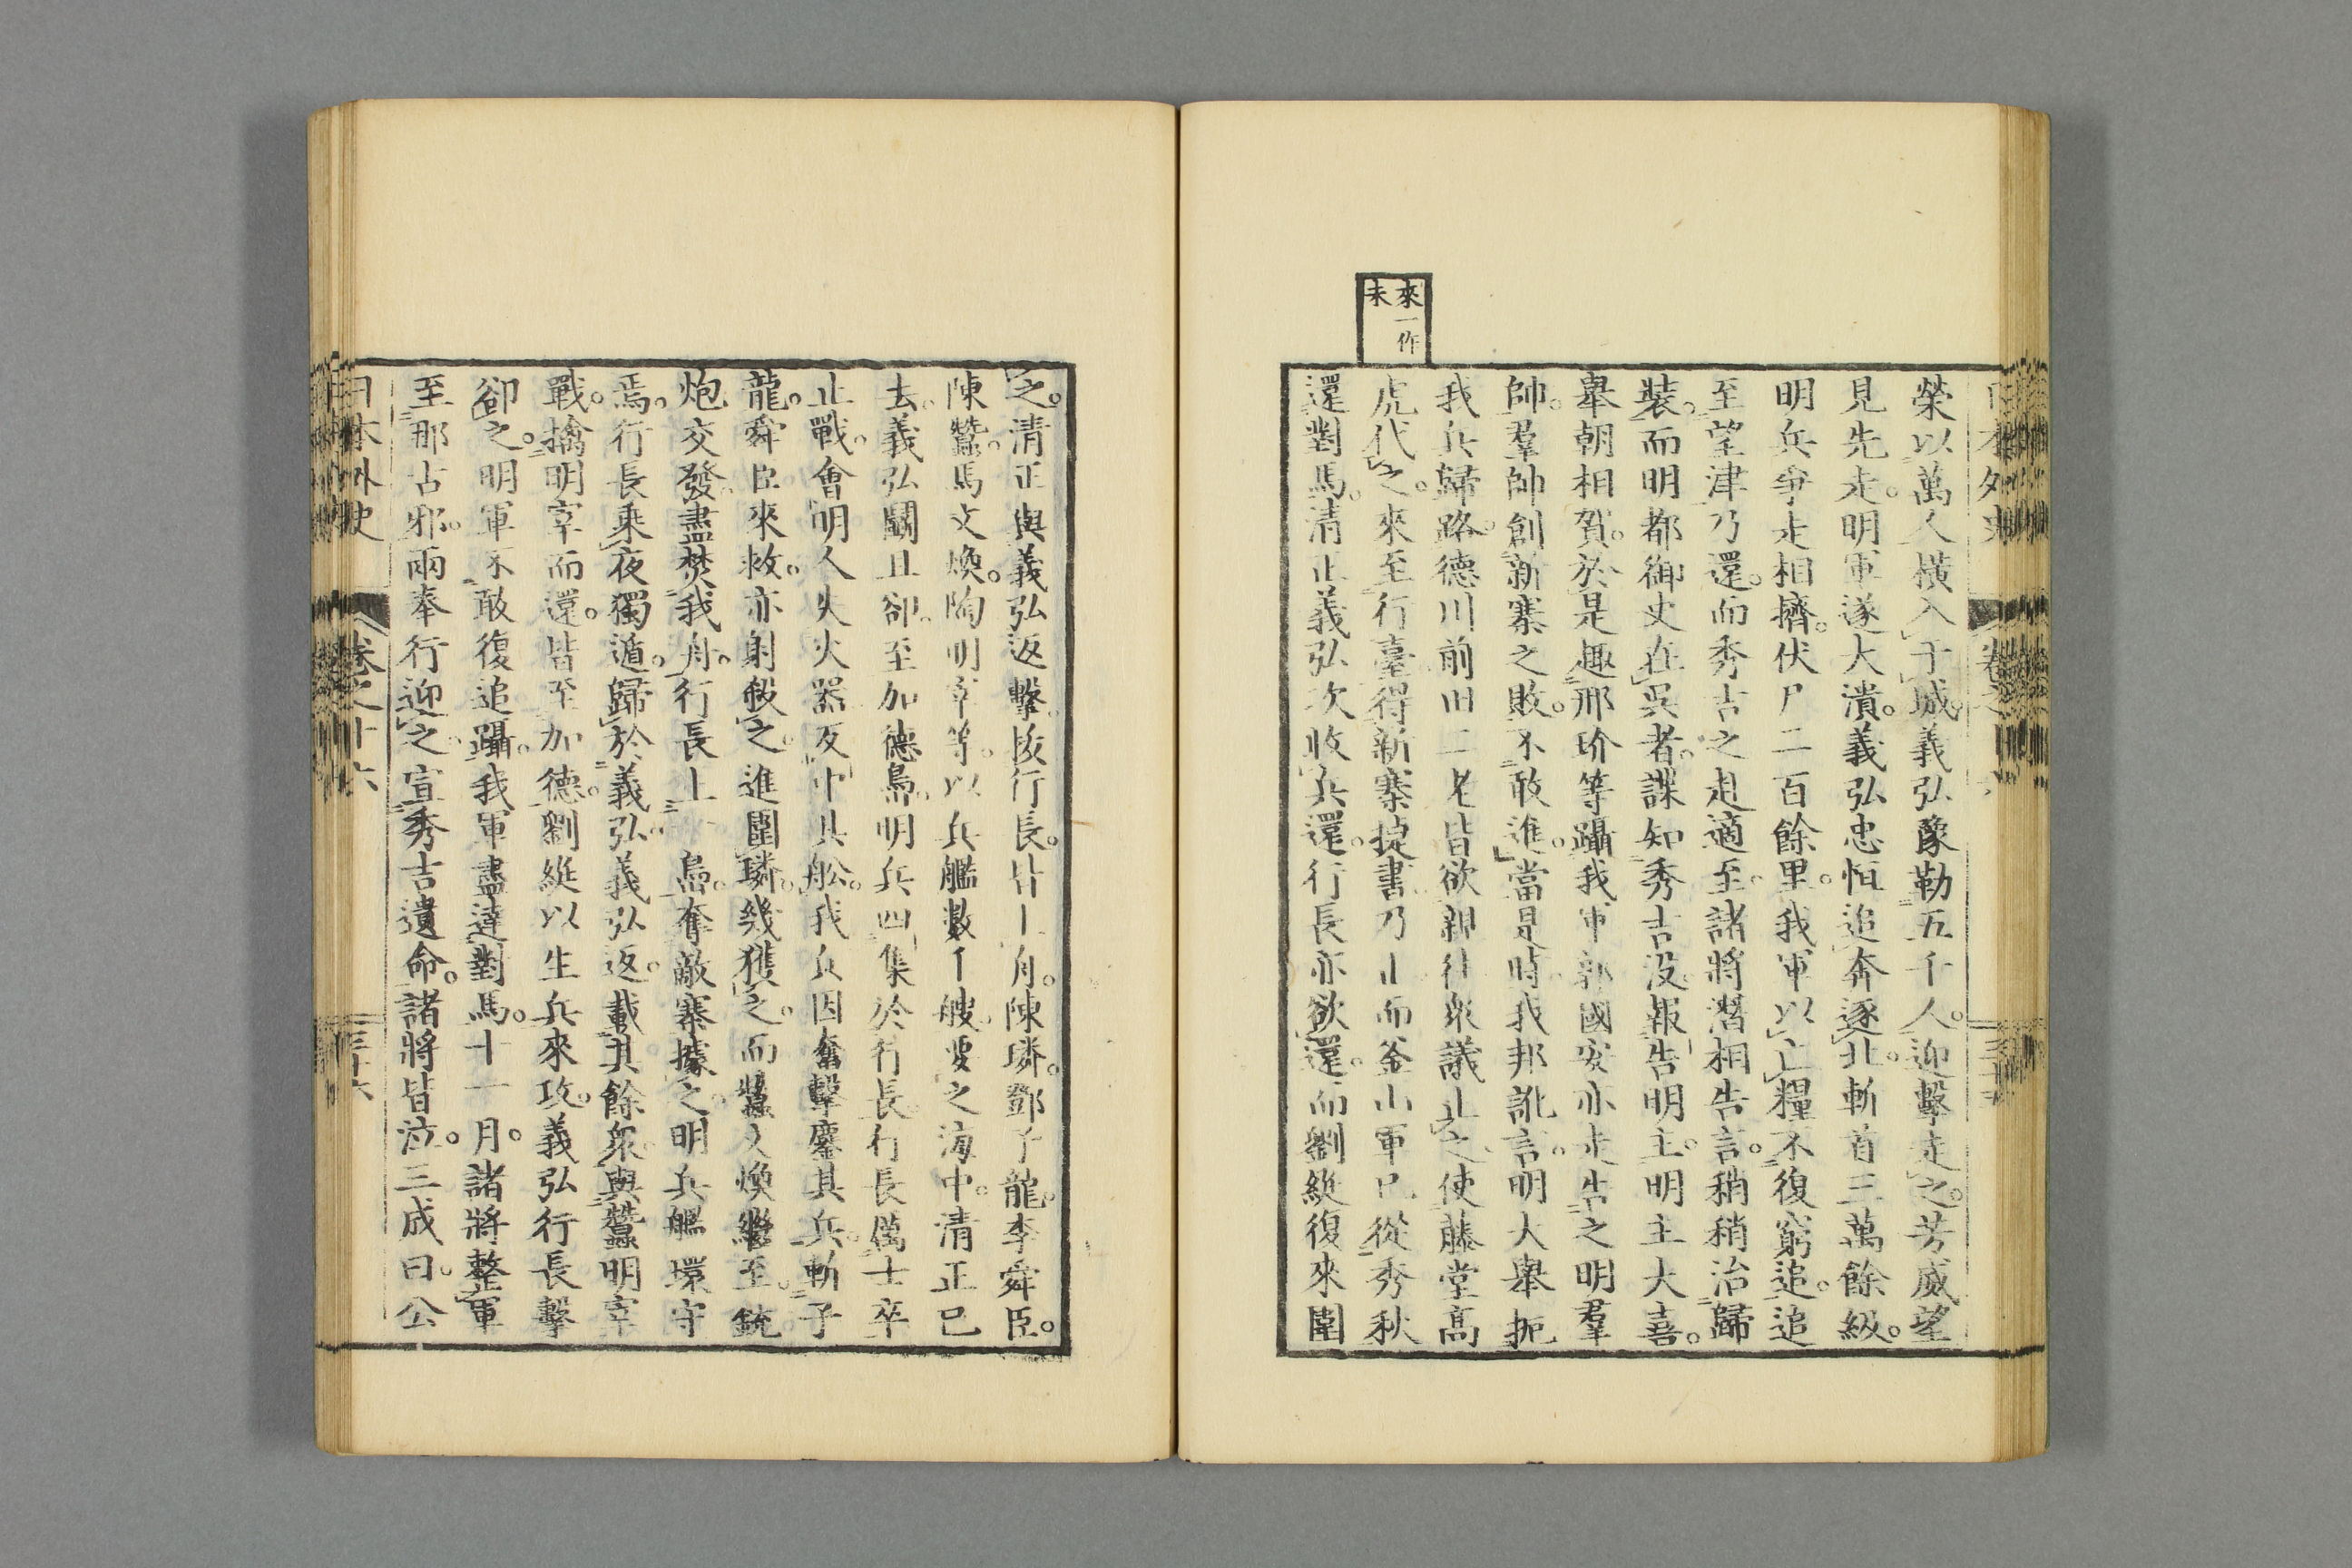 來一作
未
榮以萬人橫入于城義弘豫勒五千人迎擊走之芳威望
見先走明軍遂大潰義弘忠恒追奔逐北斬首三萬餘級
明兵爭走相擠伏尸二百餘里我軍以亡糧不復窮追追
至望津乃還而秀吉之赴適至諸將潛相告言稍稍治歸
裝而明都御史在吳者諜知秀吉沒報告明主明主大喜
舉朝相賀於是趣邢玠等躡我軍郭國安亦走告之明羣
帥羣帥創新寨之敗不敢進當是時我邦訛言明大舉扼
我兵歸路德川前田二老皆欲親往衆議止之使藤堂高
虎代之來至行臺得新寨捷書乃止而釜山軍已從秀秋
還對馬清正義弘次收兵還行長亦欲還而劉綎復來圍
之清正與義弘返擊拔行長廿一舟陳璘鄧子龍李舜臣
陳蠶馬文煥陶明宰等以兵艦數千艘要之海中清正已
去義弘鬭且卻至加德島明兵四集於行長行長厲士卒
止戰會明人失火器反中其船我兵因奮擊鏖其兵斬子
龍舜臣來救亦射殺之進圍璘幾獲之而蠶文煥繼至銃
炮交發盡焚我舟行長上島奪敵寨據之明兵艦環守
焉行長乘夜獨遁歸於義弘義弘返載其餘衆與蠶明宰
戰擒明宰而還皆至加德劉綎以生兵來攻義弘行長擊
卻之明軍不敢復追躡我軍盡達對馬十一月諸將整軍
至那古邪兩奉行迎之宣秀吉遺命諸將皆泣三成曰公
日本外史 卷之十六 三十六